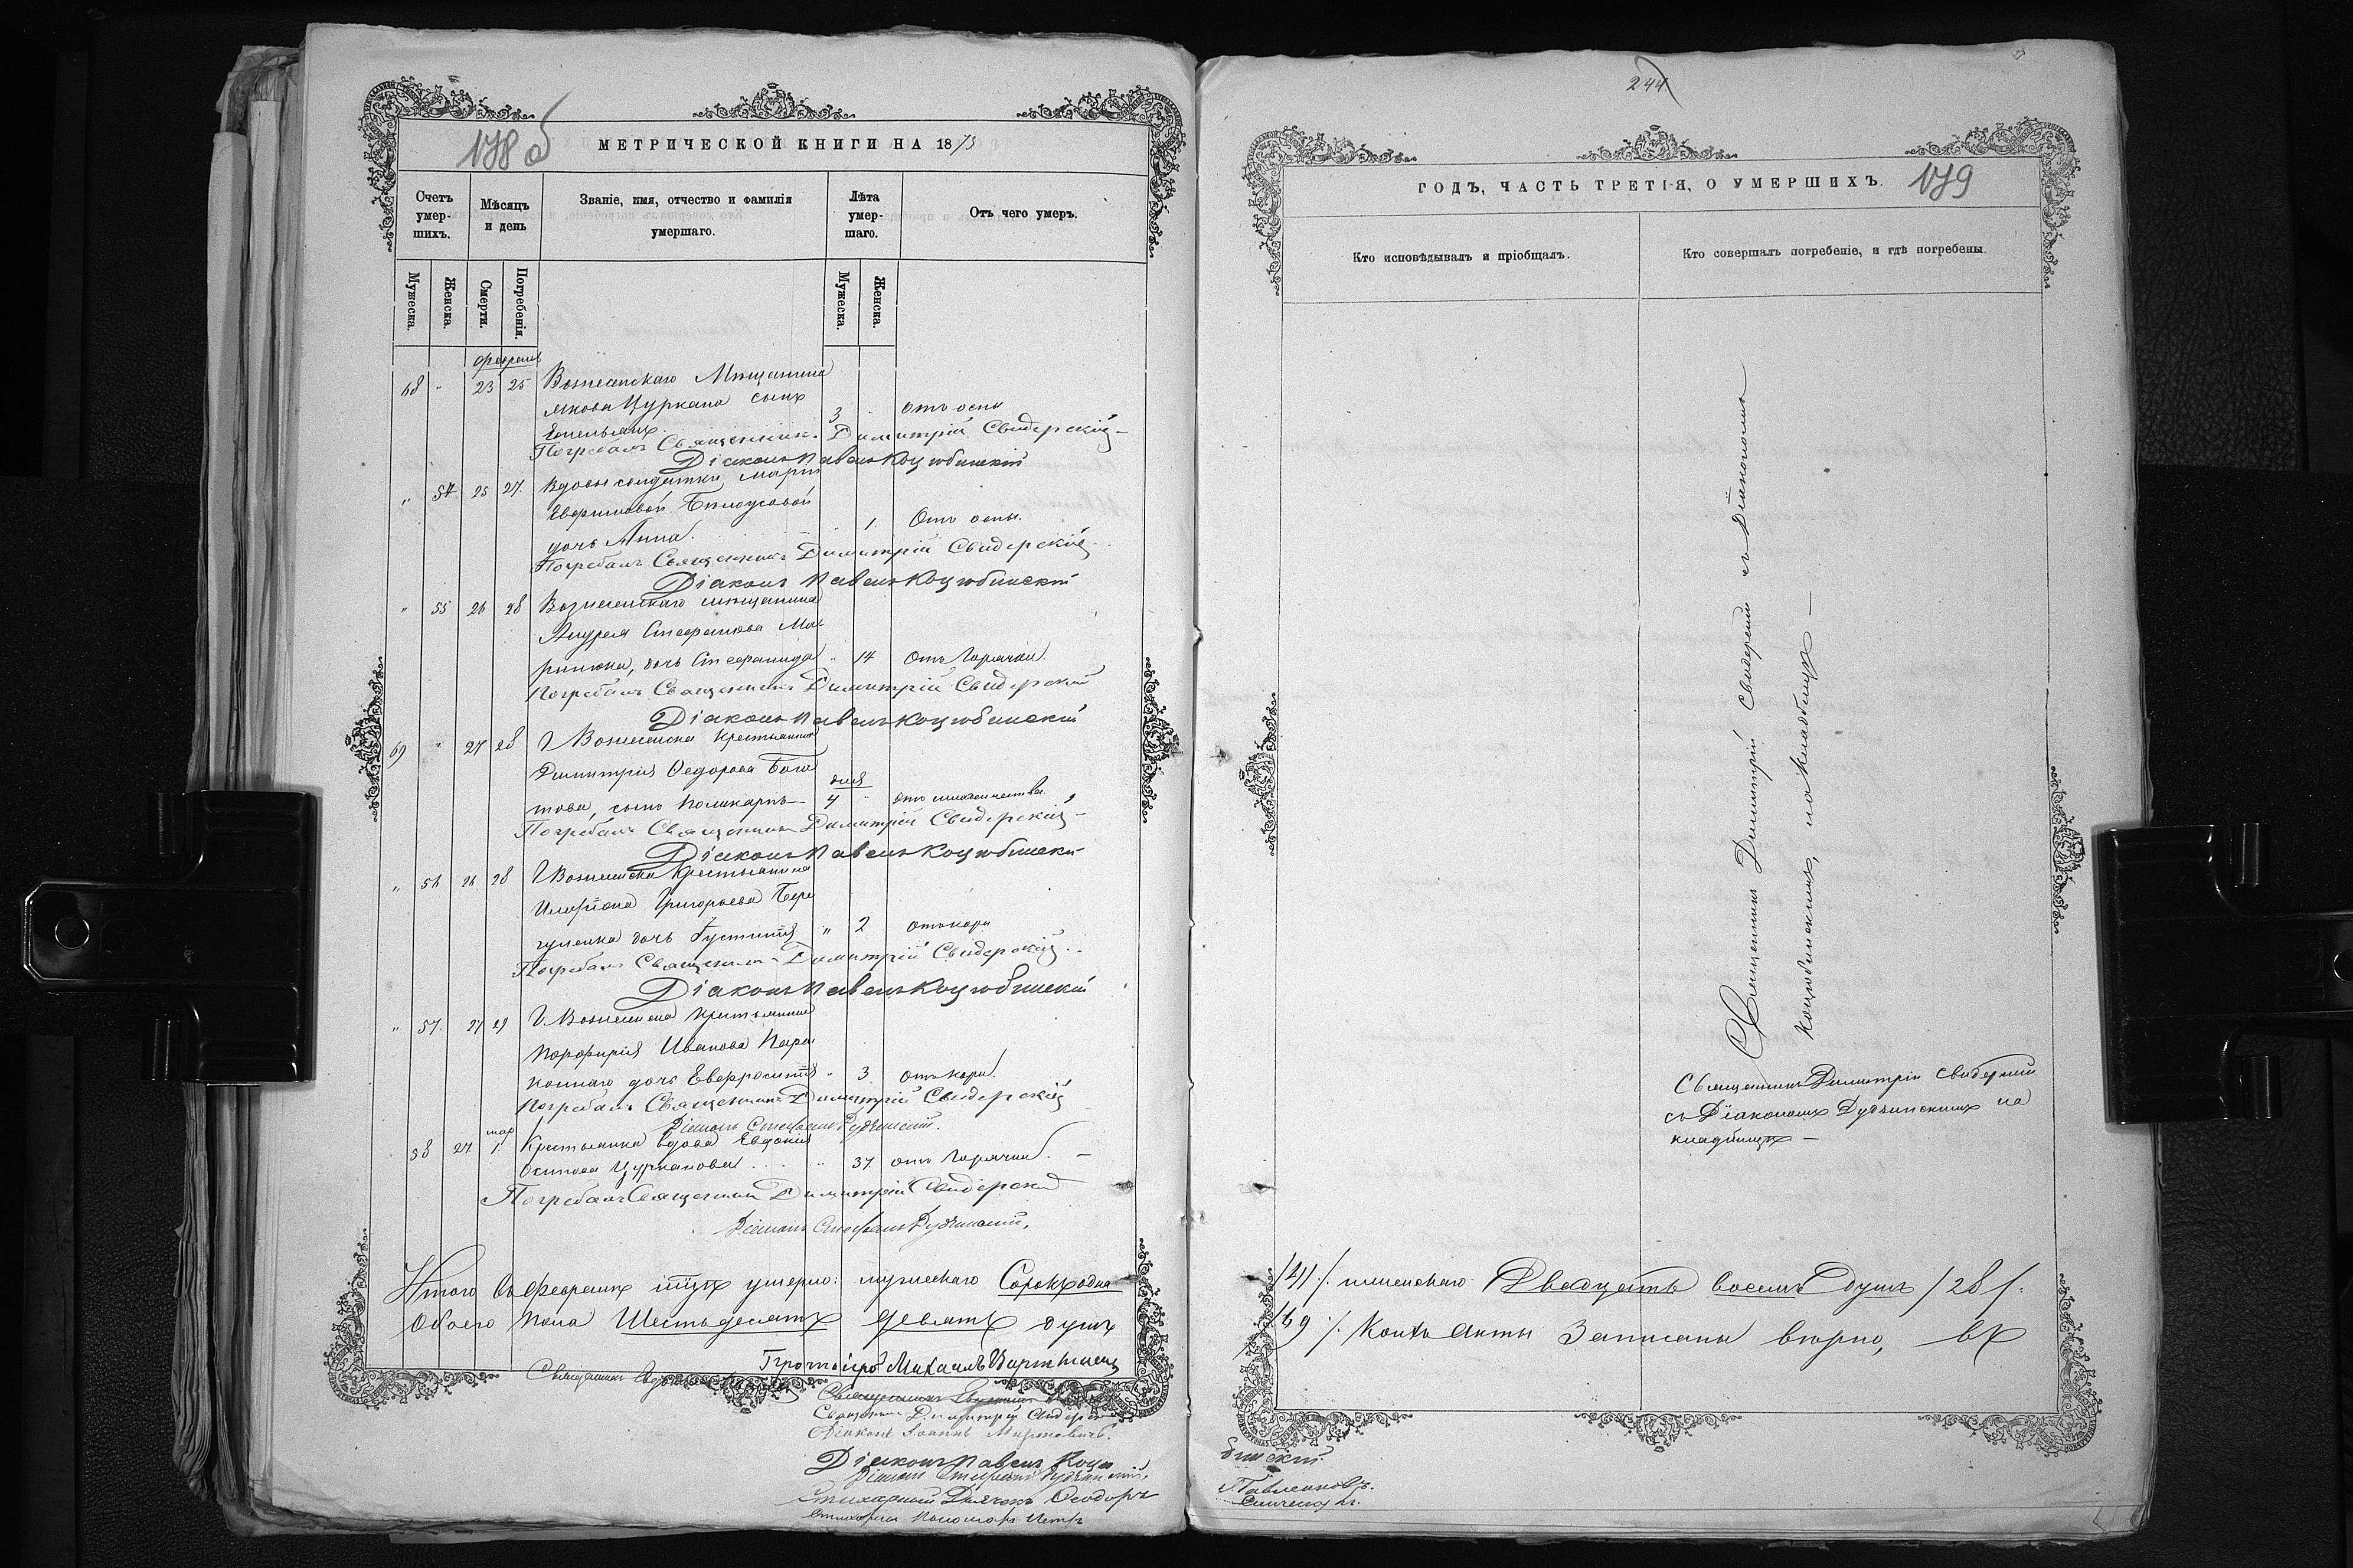 178 об
МЕТРИЧЕСКОЙ КНИГИ НА 1873
Счетъ умер-шихъ.
Мѣсяцъ и день
Званіе, имя, отчество и фамилія умершаго.
Лѣта умер-шаго.
Отъ чего умеръ.
Мужеска.
Женска.
Смерти.
Погребенія.
Мужеска.
Женска.
февраль
68 " 23 25 Вознесенскаго Мѣщанина
Якова Цуркана сынъ
Емельянъ. 3 " отъ оспы
Погребалъ Священникъ Димитрій Свидерскій
Діаконъ Павелъ Коцюбинскій
" 54 25 27. Вдовы солдатки Маріи
Ефримовой Билоусовой
дочь Анна. " 1. Отъ оспы.
Погребалъ Священникъ Димитрій Свидерскій
Діаконъ Павелъ Коцюбинскій
" 55 26 28 Вознесенскаго мѣщанина
Андрея Стефанова Ма-
ринюка, дочь Стефанида " 14 Отъ Горячки.
Погребалъ Священникъ Димитрій Свидерскій
Діаконъ Павелъ Коцюбинскій
69 " 27 28 Г Вознесенска Крестьянина
Димитрія Ѳедорова Бога
това, сынъ Поликарпъ дня 4 "
Погребалъ Священникъ Димитрій Свидерскій
Діаконъ Павелъ Коцюбинскій
" 56 26 28 Г Вознесенска Крестьянина
Григорьева
дочь Іустинія " 2 отъ кори
Погребалъ Священникъ Димитрій Свидерскій
Діаконъ Павелъ Коцюбинскій
" 57. 27 29 Г. Вознесенска Крестьянина
Порфирія Иванова
дочь Евфросинія " 3 отъ кори
Погребалъ Священникъ Димитрій Свидерскій
Діаконъ Стефанъ Дудчинскій.
58 27 мар 1. Крестьянка вдова Евдокія
Осипова Цурканова " 37 отъ Горячки. —
Погребалъ Священникъ Димитрій Свидерскій
Діаконъ Стефанъ Дудчинскій,
Итого въ Февралѣ мцѣ умерло: мужескаго Сорокъ одна
обоего пола Шестьдесятъ девять душъ
Протоіерей Михаилъ
Священникъ
Священникъ
Священникъ Димитрій Свидерск
Діаконъ Іоаннъ
Діаконъ Павелъ Коцю
Діаконъ Стефанъ Дудчинскій,
Стихарный Дьячокъ Ѳеодоръ
Стихарный Пономарь Петръ
244
ГОДЪ, ЧАСТЬ ТРЕТІЯ, О УМЕРШИХЪ.
179
Кто исповѣдывалъ и пріобщалъ.
Кто совершалъ погребеніе, и гдѣ погребены.
Священникъ Димитрій Свидерскій съ Діакономъ
Коцюбинскимъ, на кладбищѣ —
Священникъ Димитрій Свидерскій
съ Діакономъ Дудчинскимъ на
кладбищѣ —
/41/. женскаго Двадцать восемь душъ /28/.
/69/. Акты Записаны вѣрно, въ
бинскій.
Павленковъ.